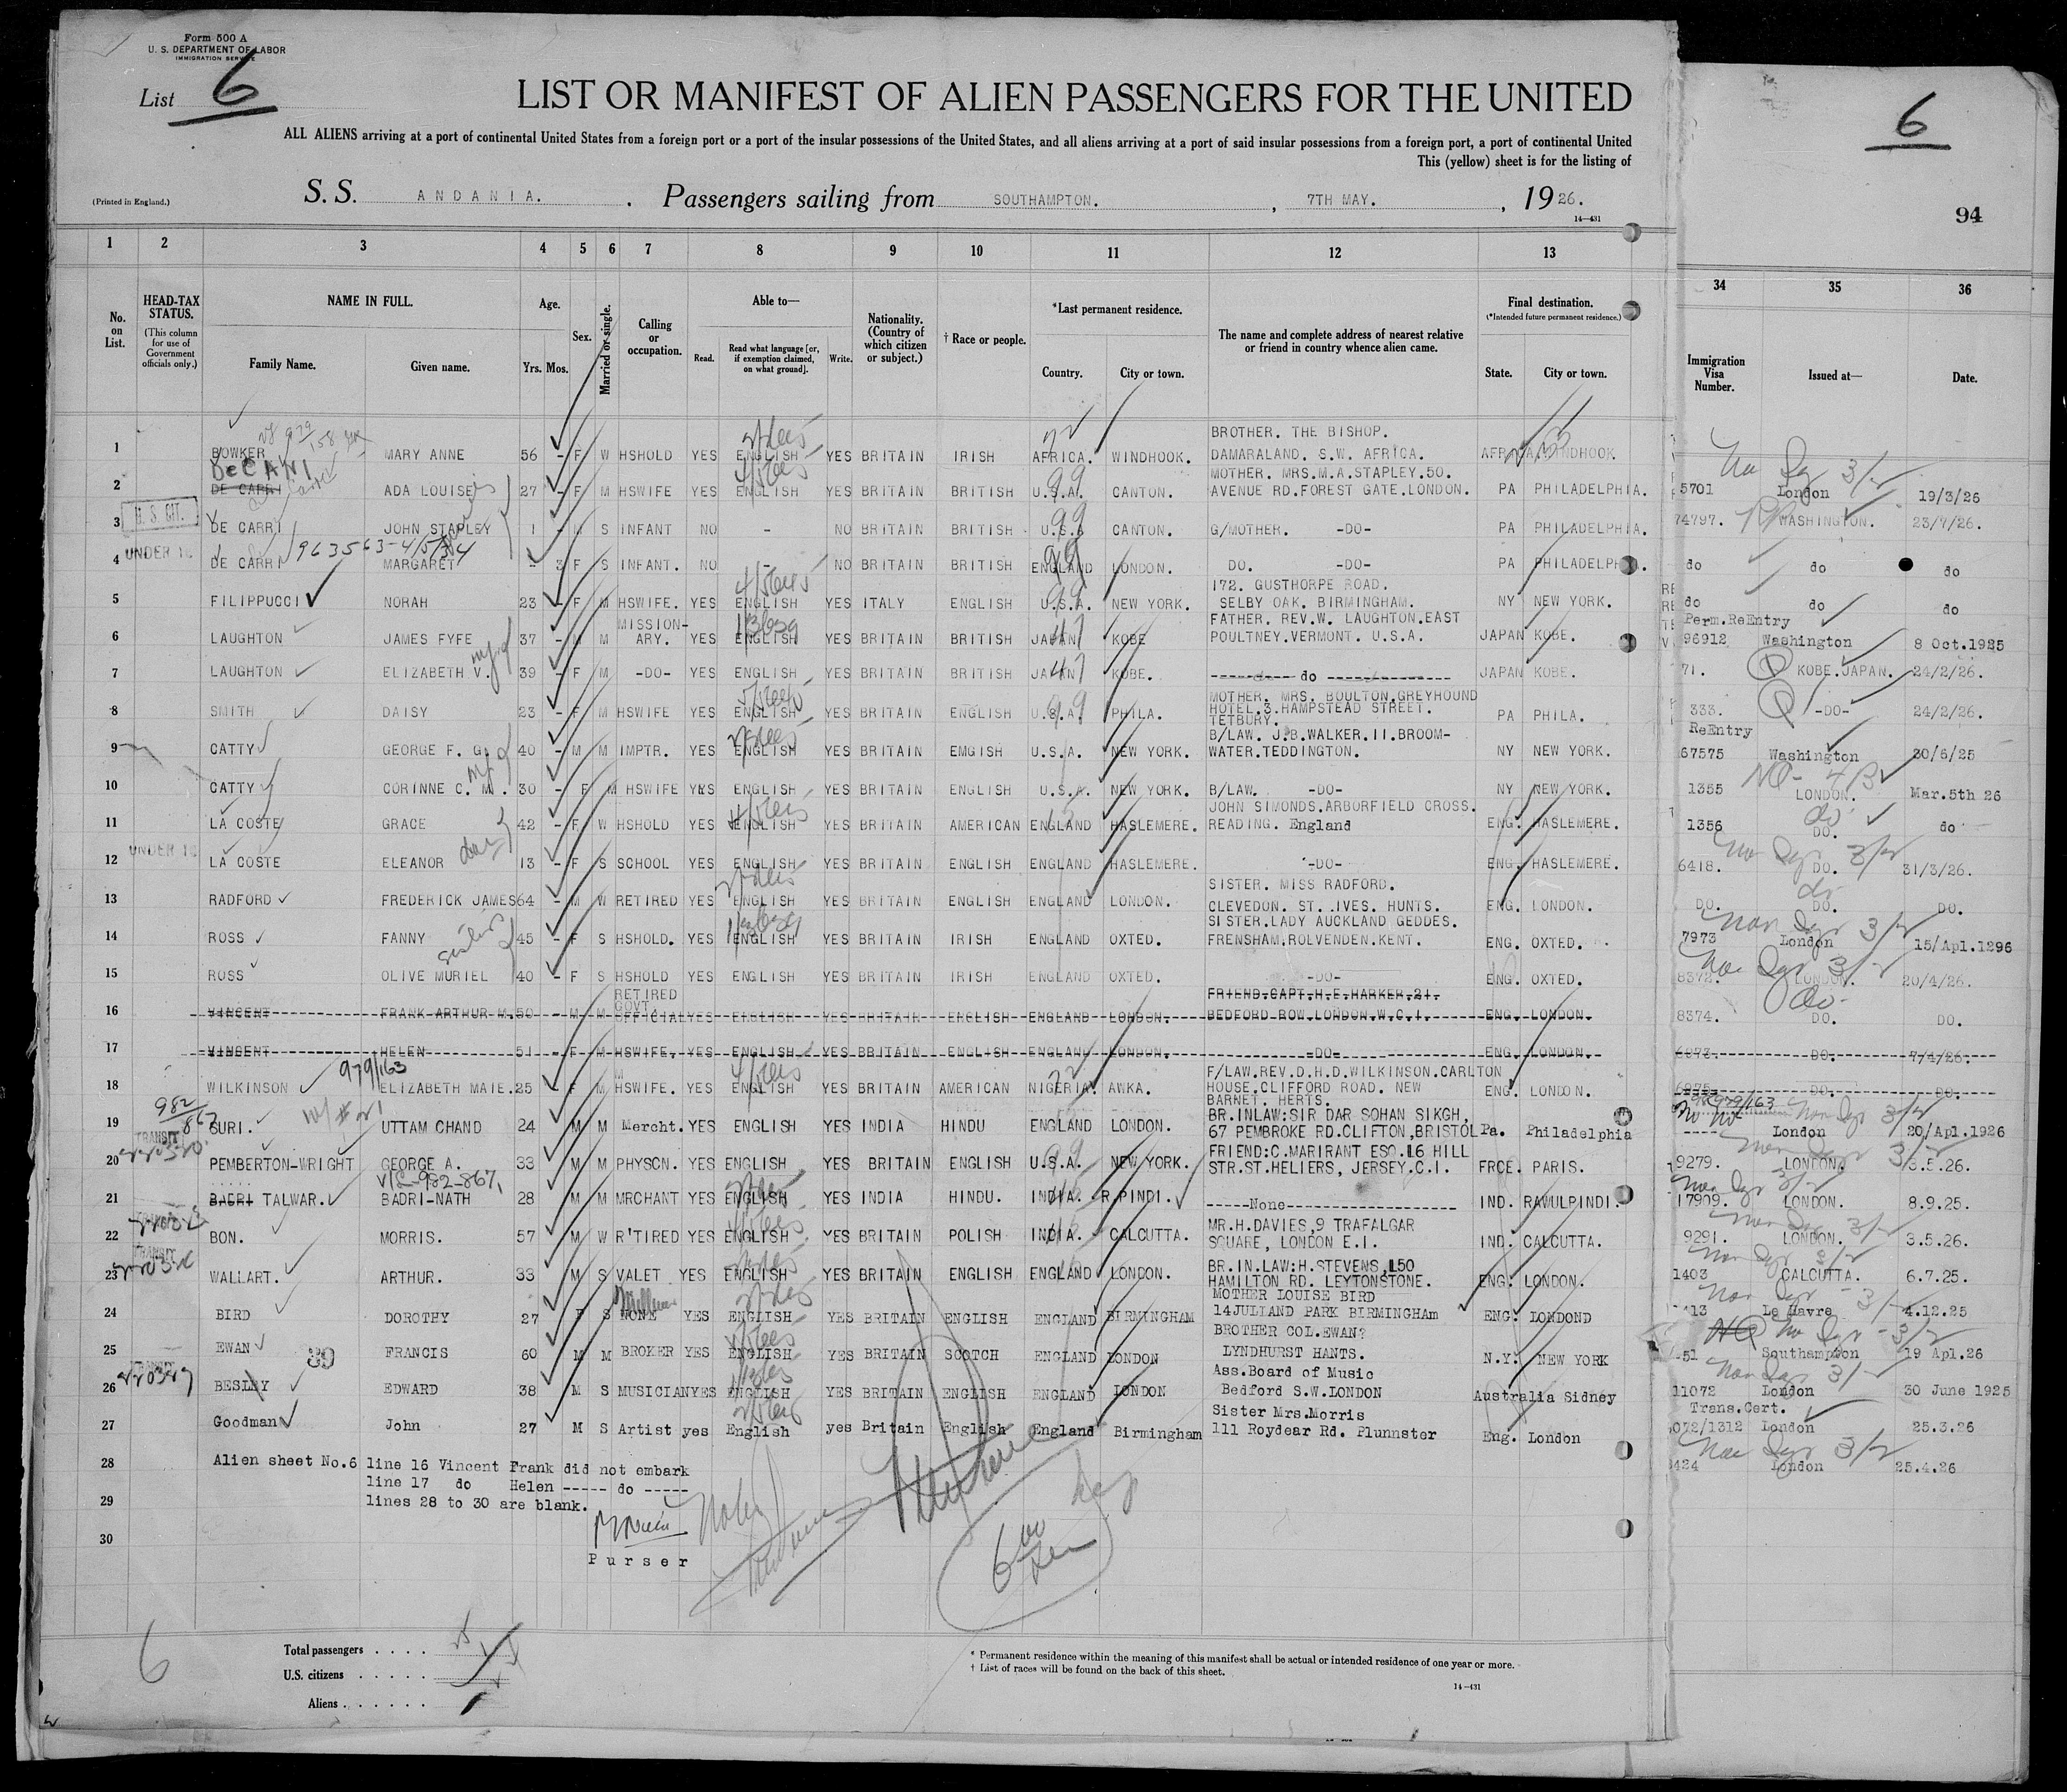 Form 500 A
U. S. DEPARTMENT OF LABOR
IMMIGRATION SERVICE
List 6
LIST OR MANIFEST OF ALIEN PASSENGERS FOR THE UNITED
6
ALL ALIENS arriving at a port of continental United States from a foreign port or a port of the insular possessions of the United States, and all aliens arriving at a port of said insular possessions from a foreign port, a port of continental United
This (yellow) sheet is for the listing of
(Printed in England.) S. S. ANDANIA. Passengers sailing from SOUTHAMPTON. , 7TH MAY. , 1926.
14—431
94
1 2 3 4 5 6 7 8 9 10 11 12 13 34 35 36
No. on List. HEAD-TAX STATUS. (This column for use of Government officials only.) NAME IN FULL. Family Name. Given name. Age. Yrs. Mos. Sex. Married or single. Calling or occupation. Able to— Read. Read what language [or, if exemption claimed, on what ground]. Write. Nationality. (Country of which citizen or subject.) † Race or people. *Last permanent residence. Country. City or town. The name and complete address of nearest relative or friend in country whence alien came. Final destination. (*Intended future permanent residence.) State. City or town. Immigration Visa Number. Issued at— Date.
BROTHER. THE BISHOP.
1 BOWKER MARY ANNE 56 - F W HSHOLD YES ENGLISH YES BRITAIN IRISH AFRICA. WINDHOOK. DAMARALAND. S.W. AFRICA. AFRICA WINDHOOK
DeCANI MOTHER. MRS.M.A.STAPLEY.50.
2 DE CARRI ADA LOUISE 27 - F M HSWIFE YES ENGLISH YES BRITAIN BRITISH U.S.A. CANTON. AVENUE RD.FOREST GATE.LONDON. PA PHILADELPHIA. 5701 London 19/3/26
U. S. CIT.
3 DE CARRI JOHN STAPLEY 1 - M S INFANT NO - NO BRITAIN BRITISH U.S.A CANTON. G/MOTHER. -DO- PA PHILADELPHIA. 74797. WASHINGTON. 23/7/26.
963563-4/5/34
4 UNDER 16 DE CARRI MARGARET - 3 F S INFANT. NO - NO BRITAIN BRITISH ENGLAND LONDON. DO. -DO- PA PHILADELPHIA. do do do
172. GUSTHORPE ROAD.
5 FILIPPUCCI NORAH 23 - F M HSWIFE. YES ENGLISH YES ITALY ENGLISH U.S.A. NEW YORK. SELBY OAK. BIRMINGHAM. NY NEW YORK. do do do
MISSION- FATHER. REV.W. LAUGHTON.EAST Perm.ReEntry
6 LAUGHTON JAMES FYFE 37 - M M ARY. YES ENGLISH YES BRITAIN BRITISH JAPAN KOBE POULTNEY.VERMONT. U.S.A. JAPAN KOBE. 96912 Washington 8 Oct.1925
7 LAUGHTON ELIZABETH V. 39 - F M -DO- YES ENGLISH YES BRITAIN BRITISH JAPAN KOBE. do JAPAN KOBE. 71. KOBE.JAPAN. 24/2/26.
MOTHER. MRS. BOULTON.GREYHOUND
8 SMITH DAISY 23 - F M HSWIFE YES ENGLISH YES BRITAIN ENGLISH U.S.A. PHILA. HOTEL.3.HAMPSTEAD STREET. TETBURY. PA PHILA. 333. -DO- 24/2/26.
B/LAW. J.B.WALKER.11.BROOM- ReEntry
9 CATTY GEORGE F. G. 40 - M M IMPTR. YES ENGLISH YES BRITAIN EMGISH U.S.A. NEW YORK. WATER.TEDDINGTON. NY NEW YORK. 67575 Washington 30/6/25
10 CATTY CORINNE C. M. 30 - F M HSWIFE YES ENGLISH YES BRITAIN ENGLISH U.S.A. NEW YORK. B/LAW. -DO- NY NEW YORK. 1355 LONDON. Mar.5th 26
JOHN SIMONDS.ARBORFIELD CROSS.
11 LA COSTE GRACE 42 - F W HSHOLD YES ENGLISH YES BRITAIN AMERICAN ENGLAND HASLEMERE. READING. England ENG. HASLEMERE. 1356 DO. do
12 UNDER 16 LA COSTE ELEANOR 13 - F S SCHOOL YES ENGLISH YES BRITAIN ENGLISH ENGLAND HASLEMERE. -DO- ENG. HASLEMERE. 6418. DO. 31/3/26.
SISTER. MISS RADFORD.
13 RADFORD FREDERICK JAMES 64 - M W RETIRED YES ENGLISH YES BRITAIN ENGLISH ENGLAND LONDON. CLEVEDON. ST. IVES. HUNTS. ENG. LONDON. DO. DO. DO.
SISTER.LADY AUCKLAND GEDDES.
14 ROSS FANNY 45 - F S HSHOLD. YES ENGLISH YES BRITAIN IRISH ENGLAND OXTED. FRENSHAM.ROLVENDEN.KENT. ENG. OXTED. 7973 London 15/Apl.1296
15 ROSS OLIVE MURIEL 40 - F S HSHOLD YES ENGLISH YES BRITAIN IRISH ENGLAND OXTED. -DO- ENG. OXTED. 8372. LONDON. 20/4/26.
RETIRED GOVT. FRIEND.CAPT.H.E.HARKER.21.
16 VINCENT FRANK ARTHUR M. 50 - M M OFFICIAL YES ENGLISH YES BRITAIN ENGLISH ENGLAND LONDON. BEDFORD ROW.LONDON.W.C.1. ENG. LONDON. 8374. DO. DO.
17 VINCENT HELEN 51 - F M HSWIFE. YES ENGLISH YES BRITAIN ENGLISH ENGLAND LONDON. -DO- ENG. LONDON. 6873. DO. 7/4/26.
979/163 F/LAW.REV.D.H.D.WILKINSON.CARLTON
18 WILKINSON ELIZABETH MAIE. 25 F M HSWIFE. YES ENGLISH YES BRITAIN AMERICAN NIGERIA. AWKA. HOUSE.CLIFFORD ROAD. NEW BARNET. HERTS. ENG. LONDON. DO. DO.
982/867 BR.INLAW:SIR DAR SOHAN SIKGH,
19 SURI. UTTAM CHAND 24 M M Mercht. YES ENGLISH YES INDIA HINDU ENGLAND LONDON. 67 PEMBROKE RD.CLIFTON,BRISTOL Pa. Philadelphia ---- London 20/Apl.1926
TRANSIT FRIEND:C.MARIRANT ESQ.16 HILL
20 PEMBERTON-WRIGHT GEORGE A. 33 M M PHYSCN. YES ENGLISH YES BRITAIN ENGLISH U.S.A. NEW YORK. STR.ST.HELIERS, JERSEY.C.I. FRCE. PARIS. 9279. LONDON. 3.5.26.
21 BADRI TALWAR. BADRI-NATH 28 M M MRCHANT YES ENGLISH YES INDIA HINDU. INDIA. R.PINDI. -----None----- IND. RAWULPINDI. 17909. LONDON. 8.9.25.
MR.H.DAVIES,9 TRAFALGAR
22 BON. MORRIS. 57 M W R'TIRED YES ENGLISH YES BRITAIN POLISH INDIA. CALCUTTA. SQUARE, LONDON E.1. IND. CALCUTTA. 9291. LONDON. 3.5.26.
TRANSIT BR.IN.LAW:H.STEVENS,150
23 WALLART. ARTHUR. 33 M S VALET YES ENGLISH YES BRITAIN ENGLISH ENGLAND LONDON. HAMILTON RD. LEYTONSTONE. ENG: LONDON. 1403 CALCUTTA. 6.7.25.
MOTHER LOUISE BIRD
24 BIRD DOROTHY 27 F S NONE YES ENGLISH YES BRITAIN ENGLISH ENGLAND BIRMINGHAM 14JULIAND PARK BIRMINGHAm ENG. LONDOND 413 Le Havre 4.12.25
BROTHER COL.EWAN?
25 EWAN 39 FRANCIS 60 M M BROKER YES ENGLISH YES BRITAIN SCOTCH ENGLAND LONDON LYNDHURST HANTS. N.Y. NEW YORK 51 Southampton 19 Apl.26
Ass.Board of Music
26 BESLEY EDWARD 38 M S MUSICIAN YES ENGLISH YES BRITAIN ENGLISH ENGLAND LONDON Bedford S.W.LONDON Australia Sidney 11072 London 30 June 1925
Sister Mrs.Morris Trans.Cert.
27 Goodman John 27 M S Artist yes English yes Britain English England Birmingham 111 Roydear Rd. Plunnster Eng. London 072/1312 London 25.3.26
28 Alien sheet No.6 line 16 Vincent Frank did not embark 424 London 25.4.26
line 17 do Helen ----- do -----
29 lines 28 to 30 are blank.
30
Purser
6
Total passengers . . . .
U.S. citizens . . . . .
Aliens . . . . . .
* Permanent residence within the meaning of this manifest shall be actual or intended residence of one year or more.
† List of races will be found on the back of this sheet.
14—431